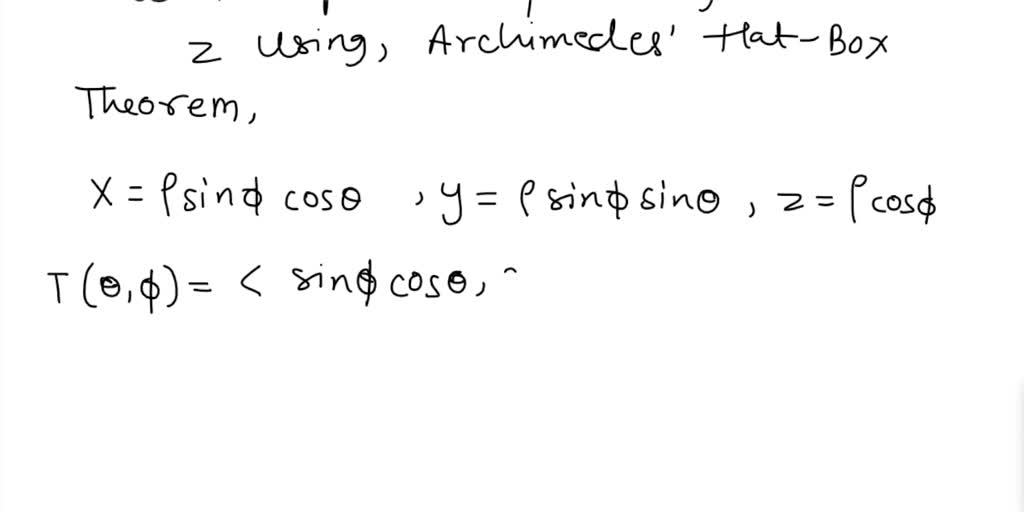 z using, Archimedes' Hat-Box
Theorem,
x = ρ sinϕ cosθ , y = ρ sinϕ sinθ , z = ρ cosϕ
T(θ,ϕ) = < sinϕ cosθ,